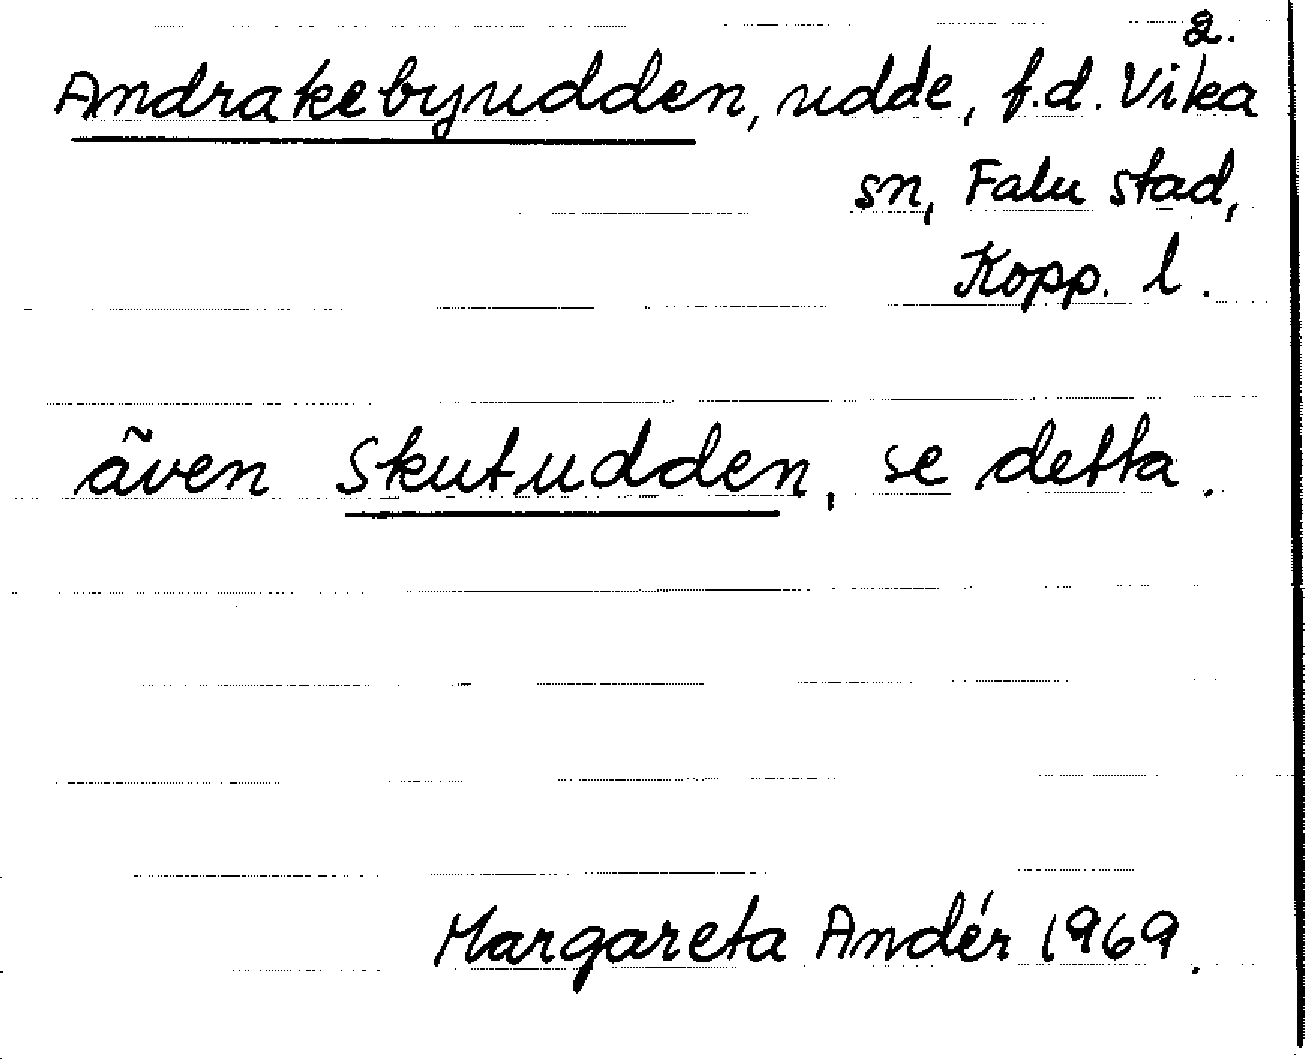 2.
Andrakebyudden, udde, f.d. Vika
sn, Falu stad,
Kopp. l.
även Skutudden, se detta.
Margareta Andér 1969.